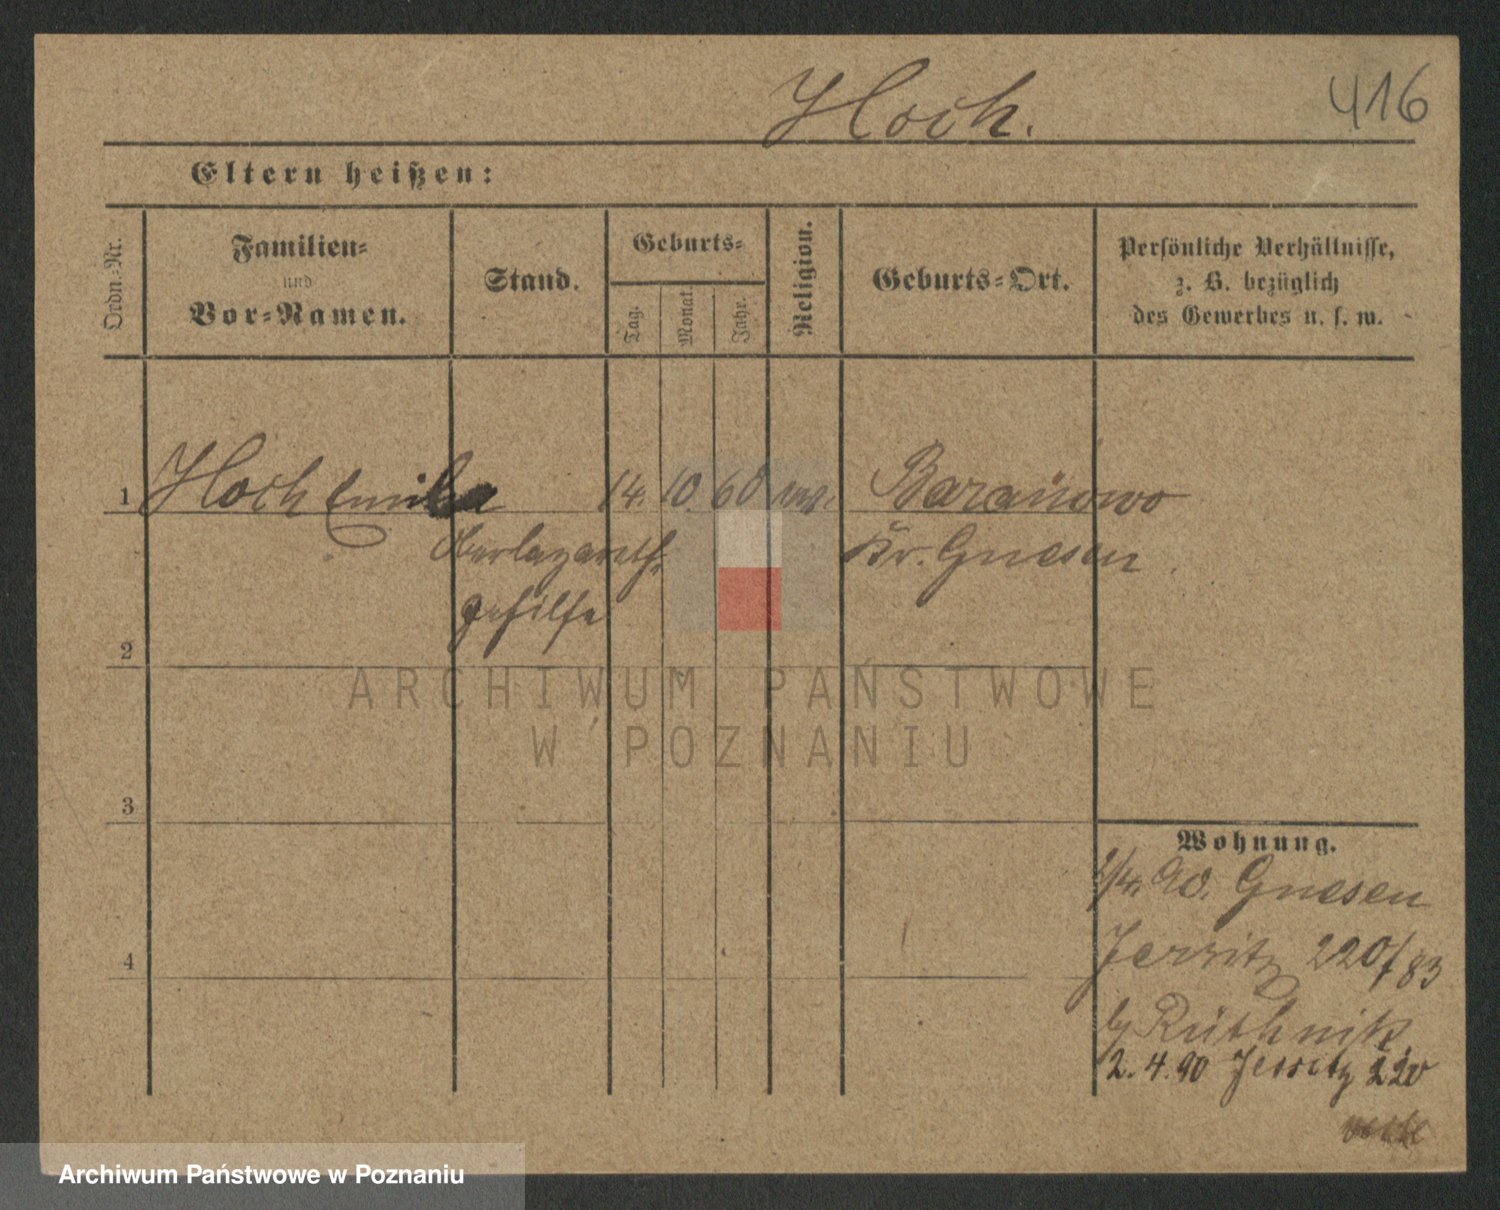 Hoch.
416
Eltern heißen:
Ordn.-Nr.
Familien-
und
Vor-Namen.
Stand.
Geburts-
Tag.
Monat.
Jahr.
Religion.
Geburts-Ort.
Persönliche Verhältnisse,
z. B. bezüglich
des Gewerbes u. s. w.
1 Hoch 14. 10. 60 Baranowo
Oberlazareth- Kr. Gnesen
gehilfe
2
ARCHIWUM PAŃSTWOWE
W POZNANIU
3
Wohnung.
1/4. 90. Gnesen
4
Jersitz 220/83
2. 4. 90 Jersitz 220
Archiwum Państwowe w Poznaniu